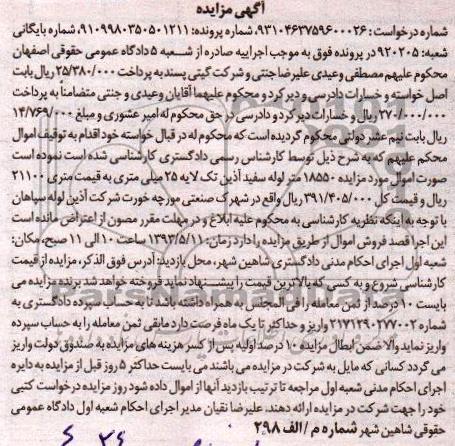 آگهی مزایده
شماره درخواست: ۹۳۱۰۴۶۳۷۵۹۶۰۰۰۲۶، شماره پرونده: ۹۱۰۹۹۸۰۳۵۰۵۰۱۲۱۱، شماره بایگانی
شعبه: ۹۲۰۲۰۵ در پرونده فوق به موجب اجراییه صادره از شــعبه ۵ دادگاه عمومی حقوقی اصفهان
محکوم علیهم مصطفی وعیدی علیرضا جنتی و شرکت گیتی پسند به پرداخت ۲۵/۳۸۰/۰۰۰ ریال بابت
اصل خواسته و خسارات دادرسی و دیر کرد و محکوم علیهما آقایان وعیدی و جنتی متضامناً به پرداخت
۲۷۰/۰۰۰/۰۰۰ ریال و خسارات دیر کرد و دادرسی در حق محکوم له امیر عشوری و مبلغ ۱۴/۷۶۹/۰۰۰
ریال بابت نیم عشر دولتی محکوم گردیده است که محکوم له در قبال خواسته خود اقدام به توقیف اموال
محکم علیهم که به شرح ذیل توسط کارشناس رسمی دادگستری کارشناسی شده است نموده است
صورت اموال مورد مزایده ۱۸۵۵۰ متر لوله سفید آذین تک لایه ۲۵ میلی متری به قیمت متری ۲۱۱۰۰
ریال و قیمت کل ۳۹۱/۴۰۵/۰۰۰ ریال واقع در شهرک صنعتی مورچه خورت شرکت آذین لوله سپاهان
با توجه به اینکه نظریه کارشناسی به محکوم علیه ابلاغ و در مهلت مقرر مصون از اعتراض مانده است
این اجرا قصد فروش اموال از طریق مزایده را دارد زمان: ۱۳۹۳/۵/۱۱ ساعت ۱۰ الی ۱۱ صبح، مکان:
شعبه اول اجرای احکام مدنی دادگستری شاهین شهر، محل بازدید: آدرس فوق الذکر، مزایده از قیمت
کارشناسی شروع و به کسی که بالاترین قیمت را پیشــنهاد نماید فروخته خواهد شد برنده مزایده می
بایست ۱۰ درصد از ثمن معامله را فی المجلس به همراه داشته باشد تا به حساب سپرده دادگستری به
شماره ۲۱۷۱۲۹۰۲۷۷۰۰۲ واریز و حداکثر تا یک ماه فرصت دارد مابقی ثمن معامله را به حساب سپرده
واریز نماید والا ضمن ابطال مزایده ۱۰ درصد اولیه پس از کسر هزینه های مزایده به صندوق دولت واریز
می گردد کسانی که مایل به شرکت در مزایده می باشند می بایست حداکثر ۵ روز قبل از مزایده به دایره
اجرای احکام مدنی شعبه اول مراجعه تا ترتیب بازدید آنها از اموال داده شود روز مزایده درخواست کتبی
خود را جهت شرکت در مزایده ارائه دهند. علیرضا نقیان مدیر اجرای احکام شعبه اول دادگاه عمومی
حقوقی شاهین شهر شماره م / الف ۲۹۸